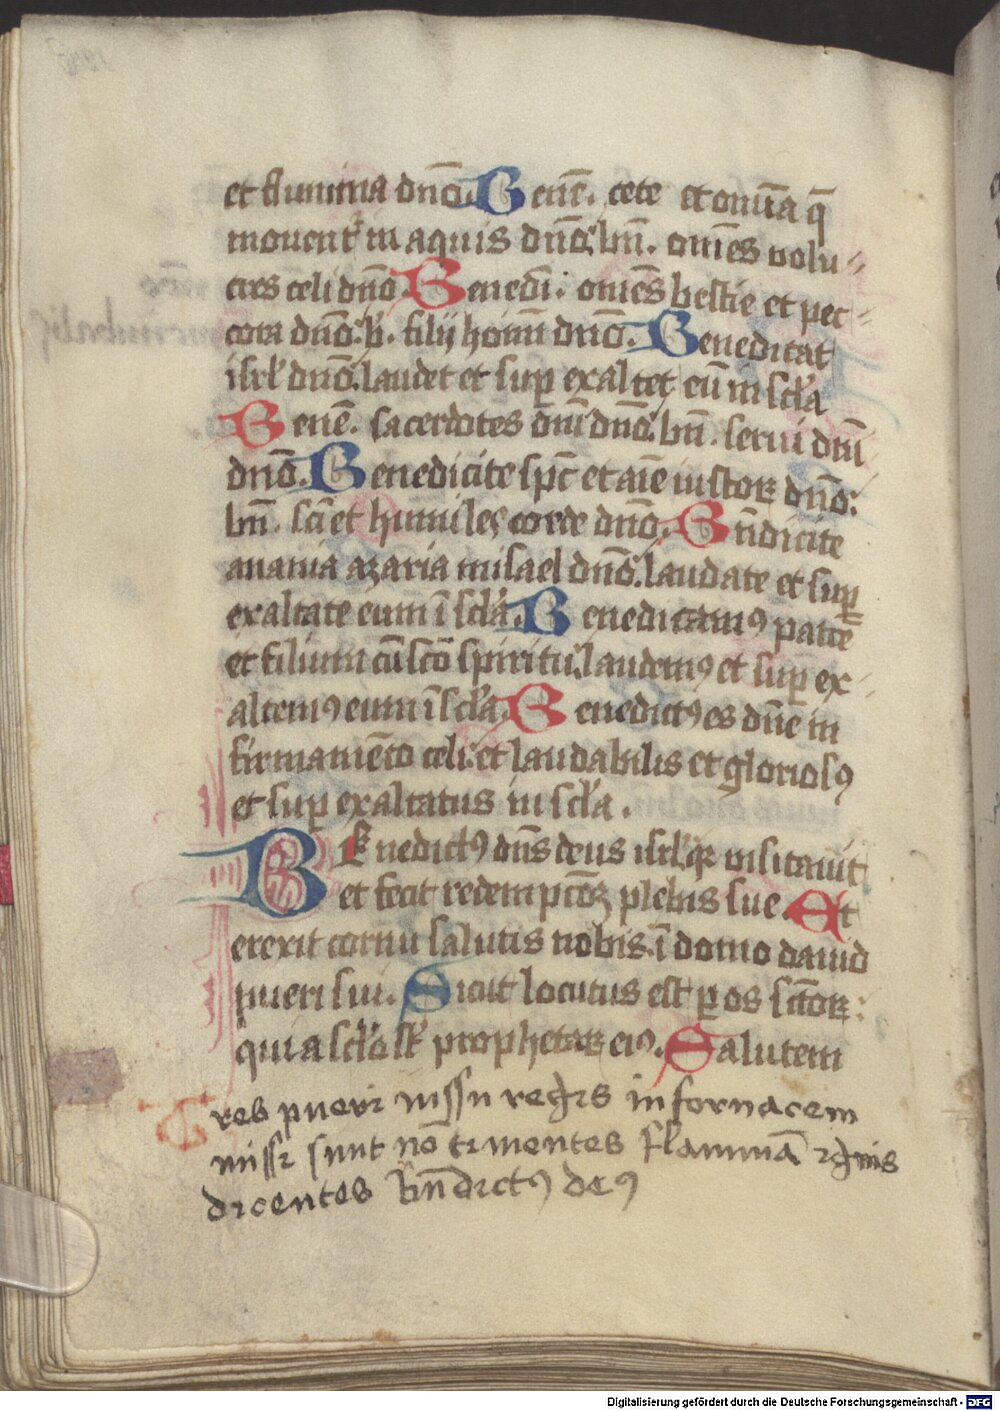 et flumina dn̄o. Benē. cete et om̄ia q̄
mouent᷑ in aquis dn̄o. bn̄. om̄es volu-
cres celi dn̄o. Benedī. om̄es bestie et pec-
cora dn̄o. b. filij hoīm dn̄o. Benedicat
isrl̓ dn̄o. laudet et suꝑ exaltet eū in sclā
Benē. sacerdotes dn̄i dn̄o. bn̄. serui dn̄i
dn̄o. Benedicite spc̄ et aīe iustoꝝ dn̄o:
bn̄. sc̄i et humiles corde dn̄o. Bn̄dicite
anania azaria misael dn̄o. laudate et suꝑ
exaltate eum ī sclā. Benedicamꝰ patrē
et filium cū sc̄o spiritu. laudemꝰ et suꝑ ex-
altemꝰ eum ī sclā. Benedictꝰ es dn̄e in
firmamēto celi. et laudabilis et gloriosꝰ
et suꝑ exaltatus in sclā.
Benedictꝰ dn̄s deus isrl̓ qꝛ visitauit
et fecit redempcōꝫ plebis sue. Et
erexit cornu salutis nobis. ī domo dauid
pueri sui. Sicut locutus est ꝑ os sc̄toꝝ:
qui a sclō sꝭ prophetaꝝ eiꝰ. Salutem
Tres pueri iussu regis in fornacem
missi sunt nō timentes flammā ignis
dicentes bn̄dictꝰ deꝰ
Digitalisierung gefördert durch die Deutsche Forschungsgemeinschaft - DFG